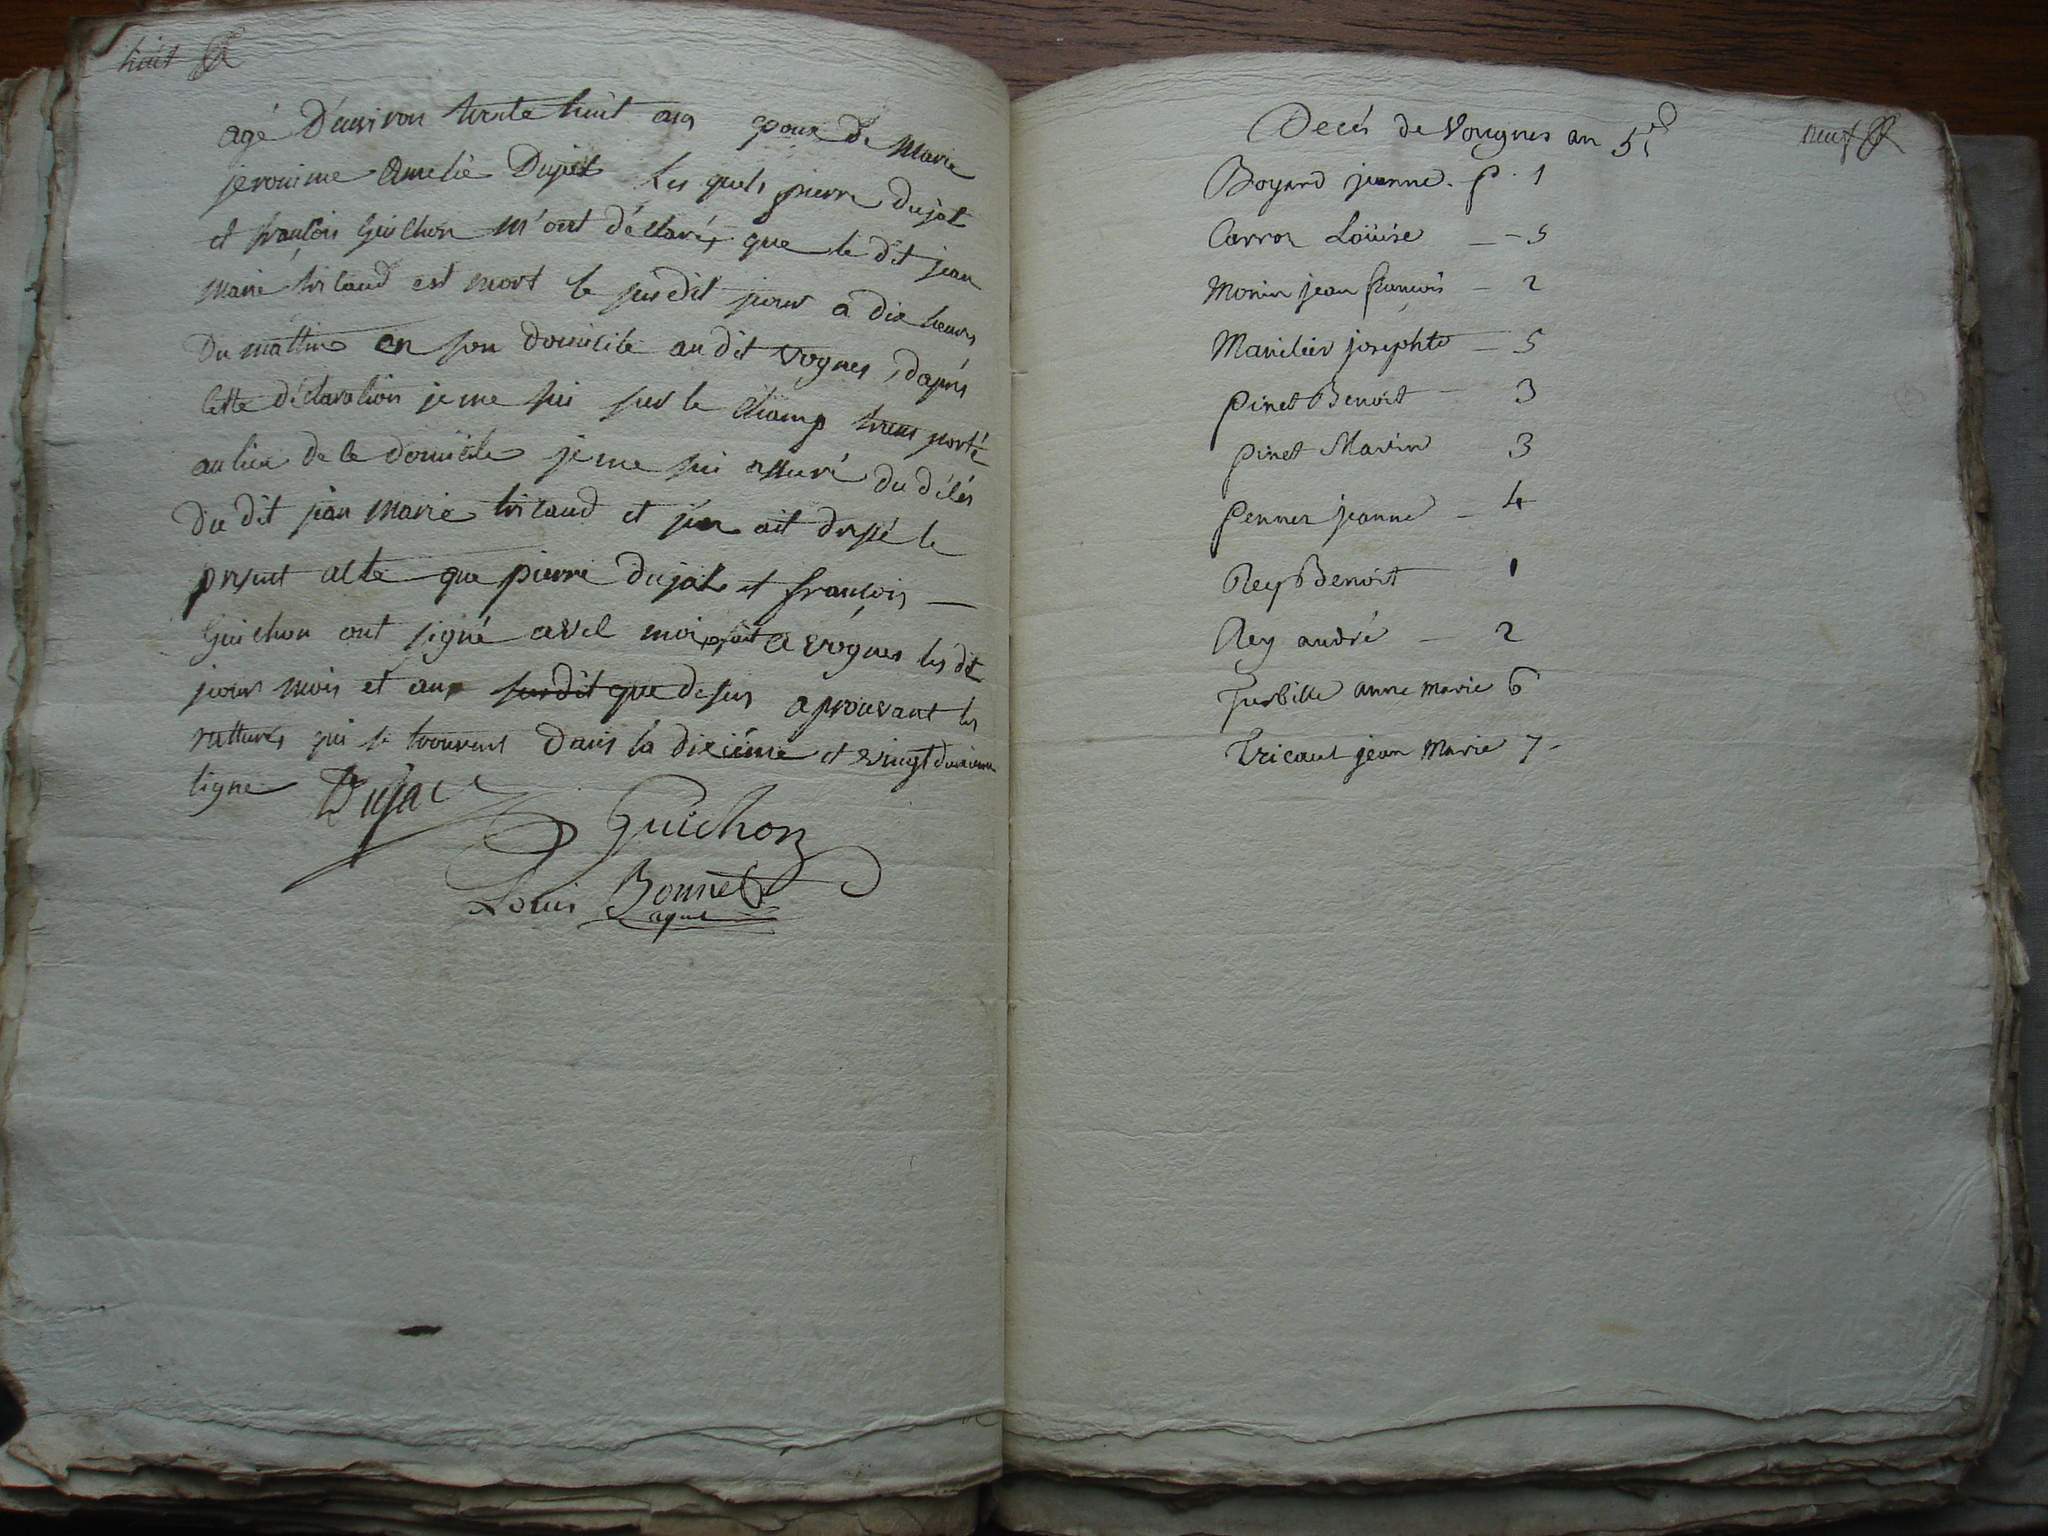 huit
agé D'environ trente huit ans epoux de Marie
jeronime Amelie Dujat Les quels pierre dujat
et françois Guichon m'ont déclaré que le dit jean
marie tricaud est mort le susdit jour a dix heures
Du mattin en son domicile audit vognes, daprés
cette déclaration je me sui sur le champ trans porté
au lieu de ce domicile je me sui assuré du décés
du dit jean marie tricaud et j'en ait dressé le
present acte que pierre dujat et françois
Guichon ont signé avec moi fait a vognes les dit
jour mois et an susdit que desus aprouvant les
rattures qui se trouvent dans la dixiéme et vingt deuxieme
ligne Dujat
Guichon
Louis Bonnet
agent
neuf
Decés de Vongnes an 5.e
Boyard jeanne. p. 1
Carron Loüise - 5
Monin jean françois - 2
Marilier josephte - 5
pinet Benoit - 3
pinet Marin 3
jeanne - 4
Rey Benoit 1
Rey andré - 2
Turbille anne marie 6
Tricaut jean Marie 7-